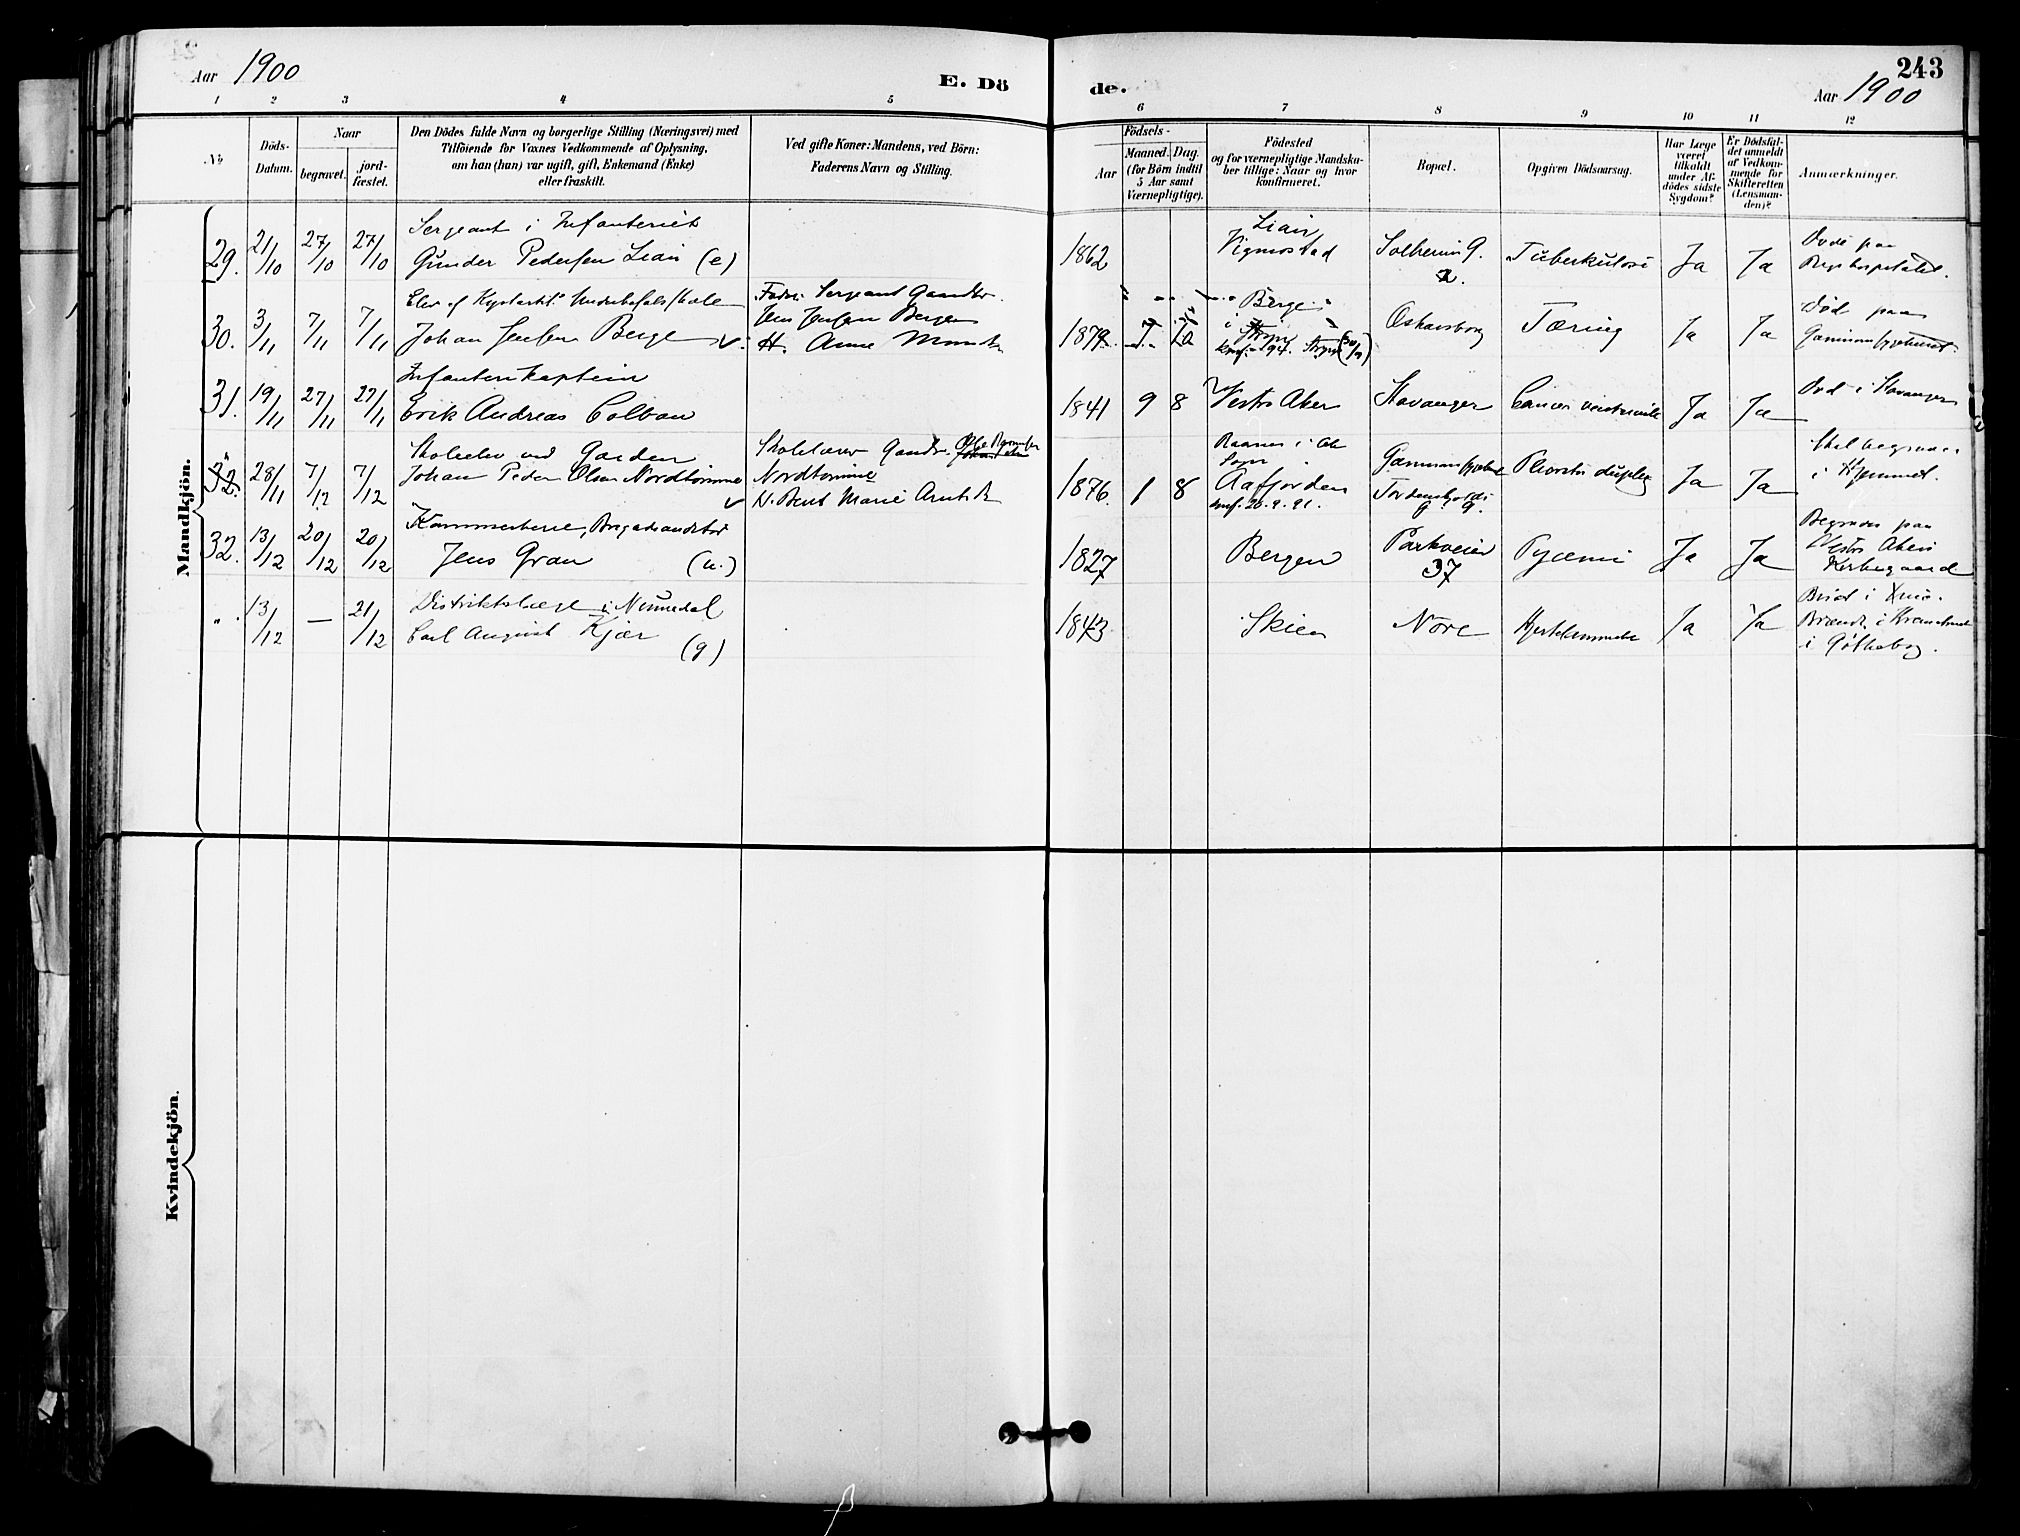 Aar 1900
E. Dö
1 2 3 4 5
№
Döds-
Datum.
Naar
begravet.
jord-
fæstet.
Den Dödes fulde Navn og borgerlige Stilling (Næringsvei) med
Tilföiende for Voxnes Vedkommende af Oplysning,
om han (hun) var ugift, gift, Enkemand (Enke)
eller fraskilt.
Ved gifte Koner: Mandens, ved Börn:
Faderens Navn og Stilling.
Mandkjön.
Sergeant i Infanteriet
29. 21/10 27/10 27/10 Gunder Pedersen Lian (e)
30. 3/11 7/11 7/11 Johan Jensen Berge
Fader: Sergeant
Jens Jensen Bergem
H. Anne
Infanterikaptein
31. 19/11 27/11 27/11 Erik Andreas Colban
Skoleelev ved Garden
32. 28/11 7/12 7/12 Johan Peder Olsen Nordtømme
Skolelærer
Nordtømme
Kammerherre, Brigadeauditør
32. 13/12 20/12 20/12 Jens Gran (u.)
Distriktslæge i Numedal
" 13/12 — 21/12 Carl August Kjær
(g)
Kvindekjön.
de.
243
Aar 1900
6 7 8 9 10 11 12
Födsels-
Aar
Maaned. Dag.
(for Börn indtil
5 Aar samt
Værnepligtige).
Födested
og for værnepligtige Mandska-
ber tillige: Naar og hvor
konfirmeret.
Bopæl.
Opgiven Dödsaarsag.
Har Læge
været
tilkaldt
under Af-
dödes sidste
Sygdom?
Er Dödsfal-
det anmeldt
af Vedkom-
mende for
Skifteretten
(Lensman-
den)?
Anmærkninger.
1862
Lian
Vigmostad
Solheim G.
2.
Tuberkulose Ja Ja
Døde paa
Rigshospitalet.
Oskarsborg Tæring Ja Ja
Død paa
Garnisonssygehuset.
1841 9 8 Vestre Aker Stavanger Cancer ventriculi Ja Ja Død i Stavanger
1876 1 8
Aafjorden
Konf. 20.9.91.
Ja Ja
Skal begraves
i Hjemmet.
1827 Bergen
Parkveien
37
Pyæmi Ja Ja
Begraves paa
Vestre Akers
Kirkegaard
1843 Skien Nore Hjertelammelse Ja Ja
Brændt i Krematoriet
i Gøtheborg.